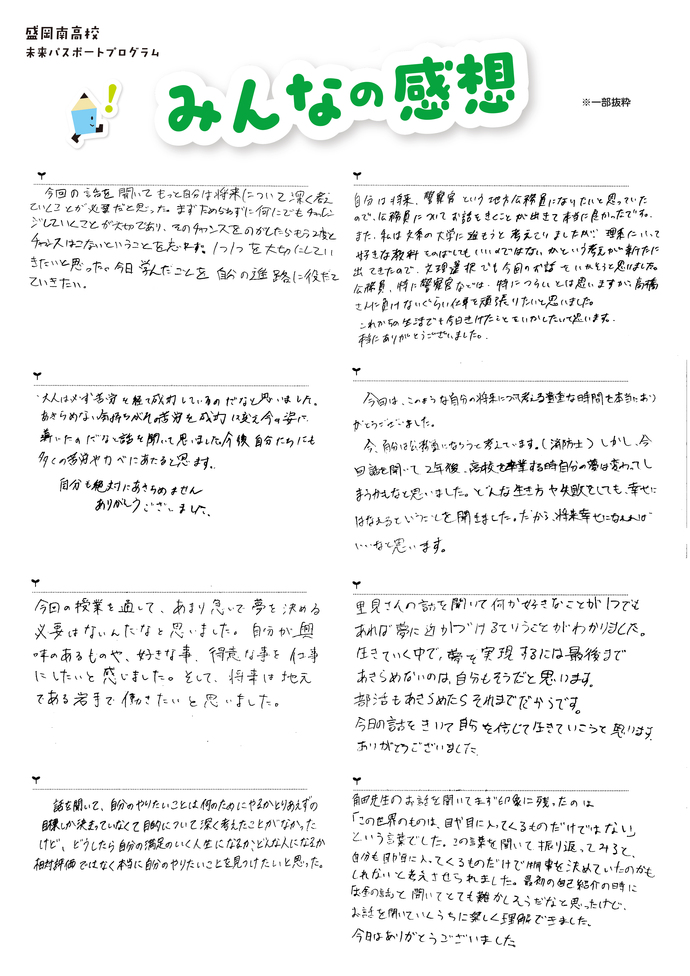 盛岡南高校
未来パスポートプログラム
みんなの感想
※一部抜粋
今回の話を聞いてもっと自分は将来について深く考え
ていくことが必要だと思った。まずためらわずに何にでもチャレン
ジしていくことが大切であり、そのチャンスをのがしたらもう2度と
チャンスはこないということを忘れず、1つ1つを大切にしてい
きたいと思った。今日学んだことを自分の進路に役だて
ていきたい。
自分は将来、警察官という地方公務員になりたいと思っていた
ので、公務員についてお話をきくことが出きて本当に良かったですね。
また、私は文系の大学に進もうと考えてりましたが、理系にいって
好きな教科をのばしてもいいのではないかという考えが新たに
出てきたので、文理選択でも今回のお話をいかそうと思いました。
公務員、特に警察官などは、特につらいとは思いますが、高橋
さんに負けないぐらい仕事を頑張りたいと思いました。
これからの生活でも今日きけたことをいかしたいて思います。
本当にありがとうございました。
大人は必ず苦労を経て成功しているのだなと思いました。
あきらめない気持ちがその苦労を成功に変え今の姿に
着いたのだなと話を聞いて思いました。今後自分たちにも
多くの苦労やカベにあたると思います。
自分も絶対にあきらめません
ありがとうございました。
今回は、このような自分の将来について考える貴重な時間を本当にあり
がとうございました。
今、自分は公務員になろうと考えています。(消防士)しかし、今
回話を聞いて2年後、高校を卒業する時自分の夢は変わってし
まうかもなと思いました。どんな生き方や失敗をしても、幸せに
はなれるということを聞きました。だから、将来幸せになれれば
いいなと思います。
今回の授業を通して、あまり急いで夢を決める
必要はないんだなと思いました。自分が興
味のあるものや、好きな事、得意な事を仕事
にしたいと感じました。そして、将来は地元
である岩手で働きたいと思いました。
里見さんの話を聞いて何か好きなことが1つでも
あれば夢に近かづけるていうことがわかりました。
生きていく中で、夢を実現するには最後まで
あきらめないのは、自分もそうだと思います。
部活もあきらめたらそれまでだからです。
今日の話をきいて自分を信じて生きていこうと思います。
ありがとうございました。
話を聞いて、自分のやりたいことは何のためにやるかとりあえずの
目標しか決まっていなくて目的について深く考えたことがなかった
けど、どうしたら自分の満足のいく人生になるか、どんな人になるか
相対評価ではなく本当に自分のやりたいことを見つけたいと思った。
角田先生のお話を聞いてまず印象に残ったのは
「この世界のものは、目や耳に入ってくるものだけではない」
という言葉でした。この言葉を聞いて振り返ってみると、
自分も目や耳に入ってくるものだけで物事を決めていたのかも
しれないと考えさせられました。最初の自己紹介の時に
「お金の話」と聞いてとても難かしそうだなと思ったけど、
お話を聞いていくうちに楽しく理解できました。
今日はありがとうございました。